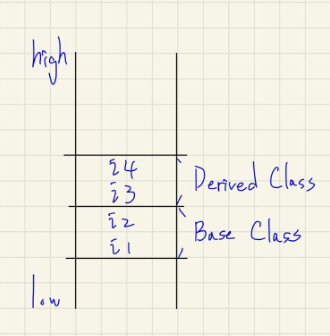 high
i4
i3
Derived Class
i2
i1
Base Class
low